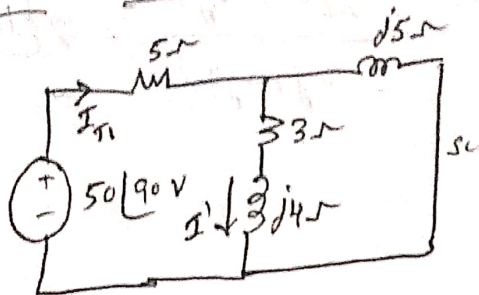 5Ω
j5Ω
I_T1
3Ω
sc
+
50∠90 V
-
I'↓
j4Ω